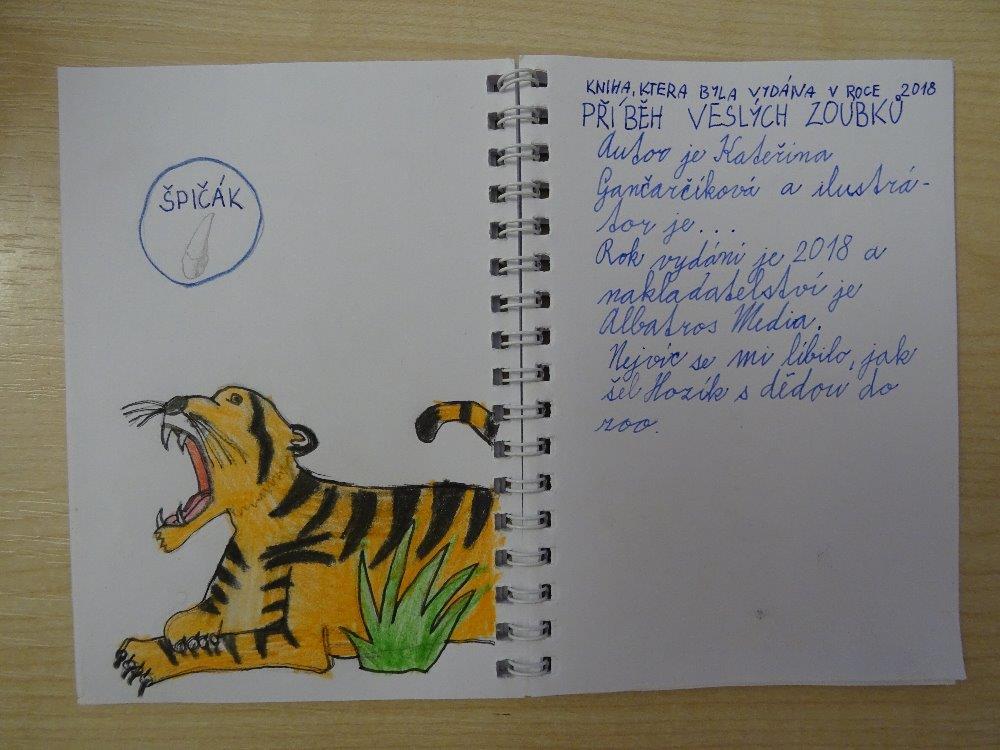 ŠPIČÁK
KNIHA, KTERA BYLA VYDÁNA V ROCE 2018
PŘÍBĚH VESLÝCH ZOUBKŮ
Autor je Kateřina
Gančarčíková a ilustrá-
tor je...
Rok vydání je 2018 a
nakladatelství je
Albatros Media.
Nejvíc se mi líbilo, jak
šel Hozík s dědou do
zoo.